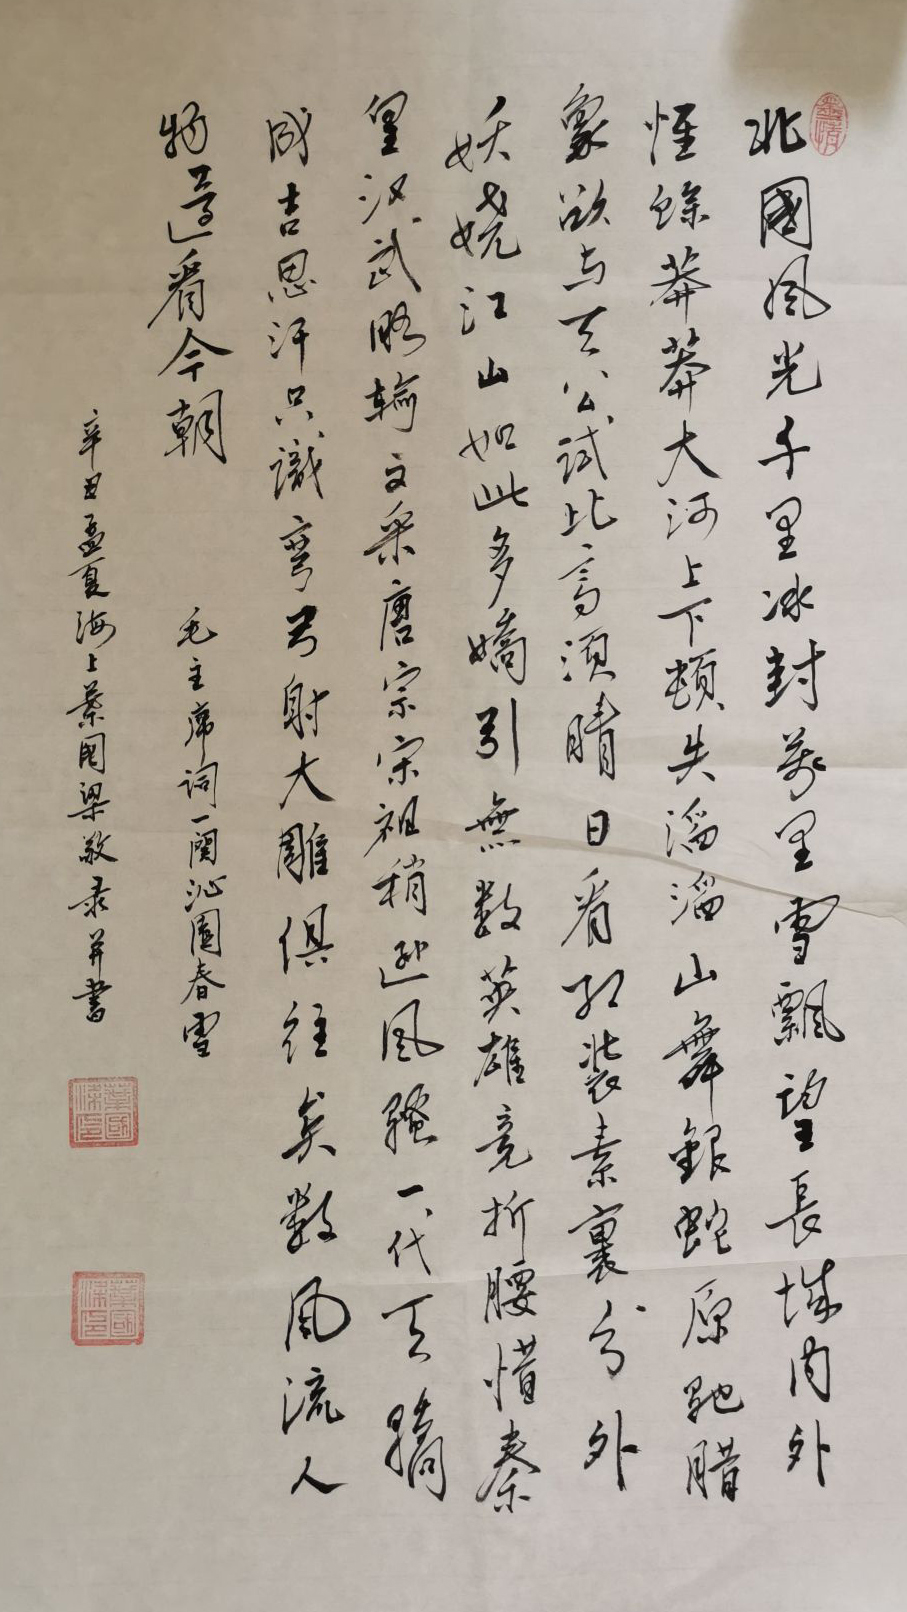 北國風光千里冰封萬里雪飄望長城内外
惟餘莽莽大河上下頓失滔滔山舞銀蛇原馳腊
象欲与天公試比高須晴日看红裝素裹分外
妖娆江山如此多嬌引無数英雄竞折腰惜秦
皇汉武略輸文采唐宗宋祖稍逊風騷一代天驕
成吉思汗只識彎弓射大雕俱往矣数風流人
物還看今朝
毛主席词一阕沁園春雪
辛丑孟夏海上葉国梁敬录并書